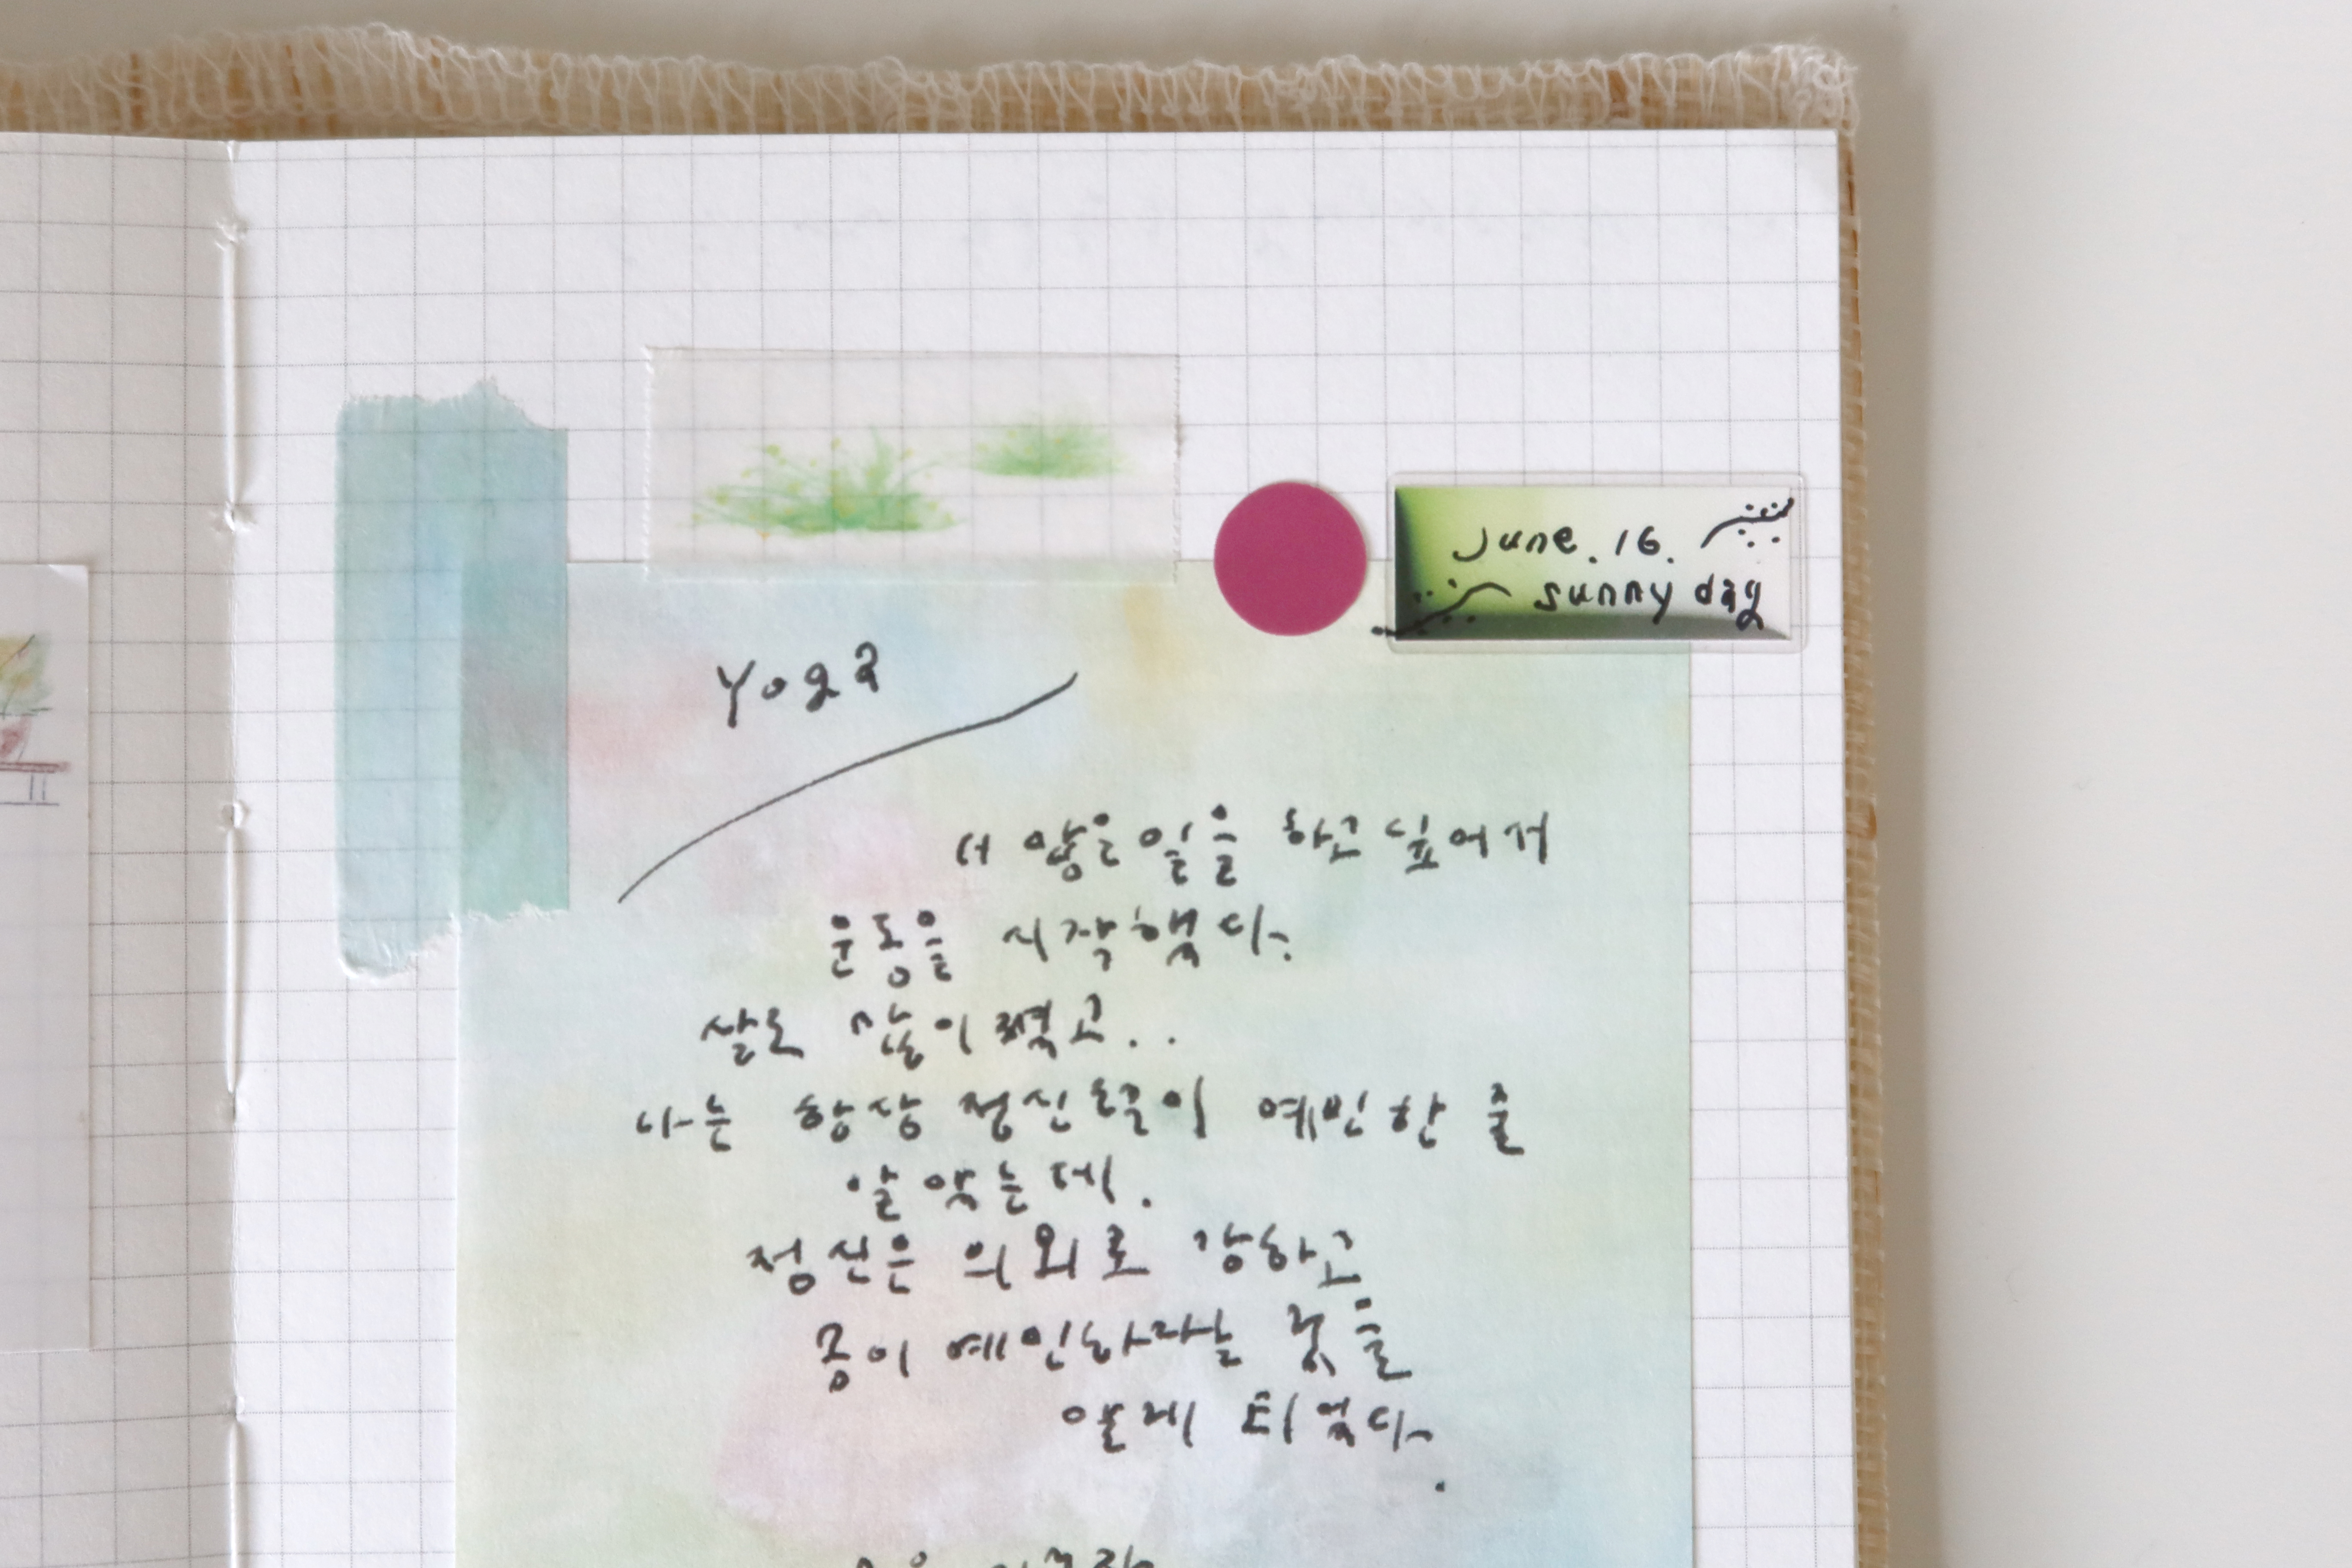 June. 16.
sunny day
Yoga
더 많은 일을 하고 싶어서
운동을 시작했다.
살도 많이 쪘고..
나는 항상 정신쪽이 예민한 줄
알았는데.
정신은 의외로 강하고
몸이 예민하다는 것을
알게 되었다.